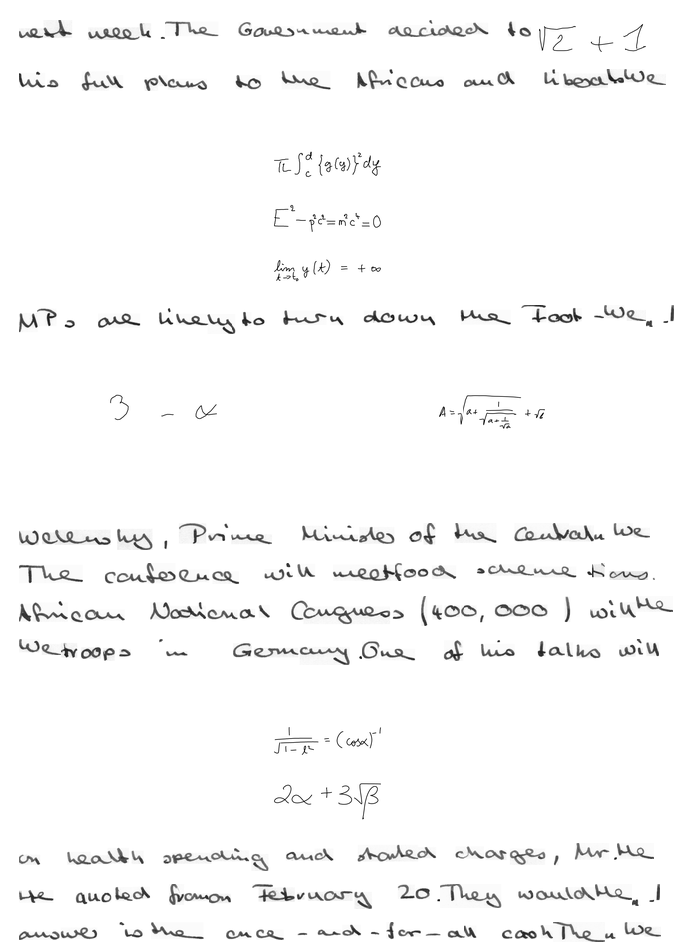 next week. The Government decided to $\sqrt{2} + 1$
his full plans to the Africans and We
$\pi \int_c^d \{g(y)\}^2 dy$
$E^2 - p^2c^2 = m^2c^4 = 0$
$\lim_{t \to t_0} y(t) = +\infty$
MPs are likely to turn down the Foot - We " I
$3 - \alpha$
$A = \sqrt{a + \frac{1}{\sqrt{a + \frac{1}{\sqrt{a}}}}} + \sqrt{b}$
Welensky, Prime Minister of the Central " We
The conference will meet food scheme tions.
African National Congress (400,000) will He
We troops in Germany. One of his talks will
$\frac{1}{\sqrt{1 - l^2}} = (\cos \alpha)^{-1}$
$2\alpha + 3\sqrt{\beta}$
on health spending and started charges, Mr. He
He quoted from on February 20. They would He " I
answer is the once - and - for - all cash The " We